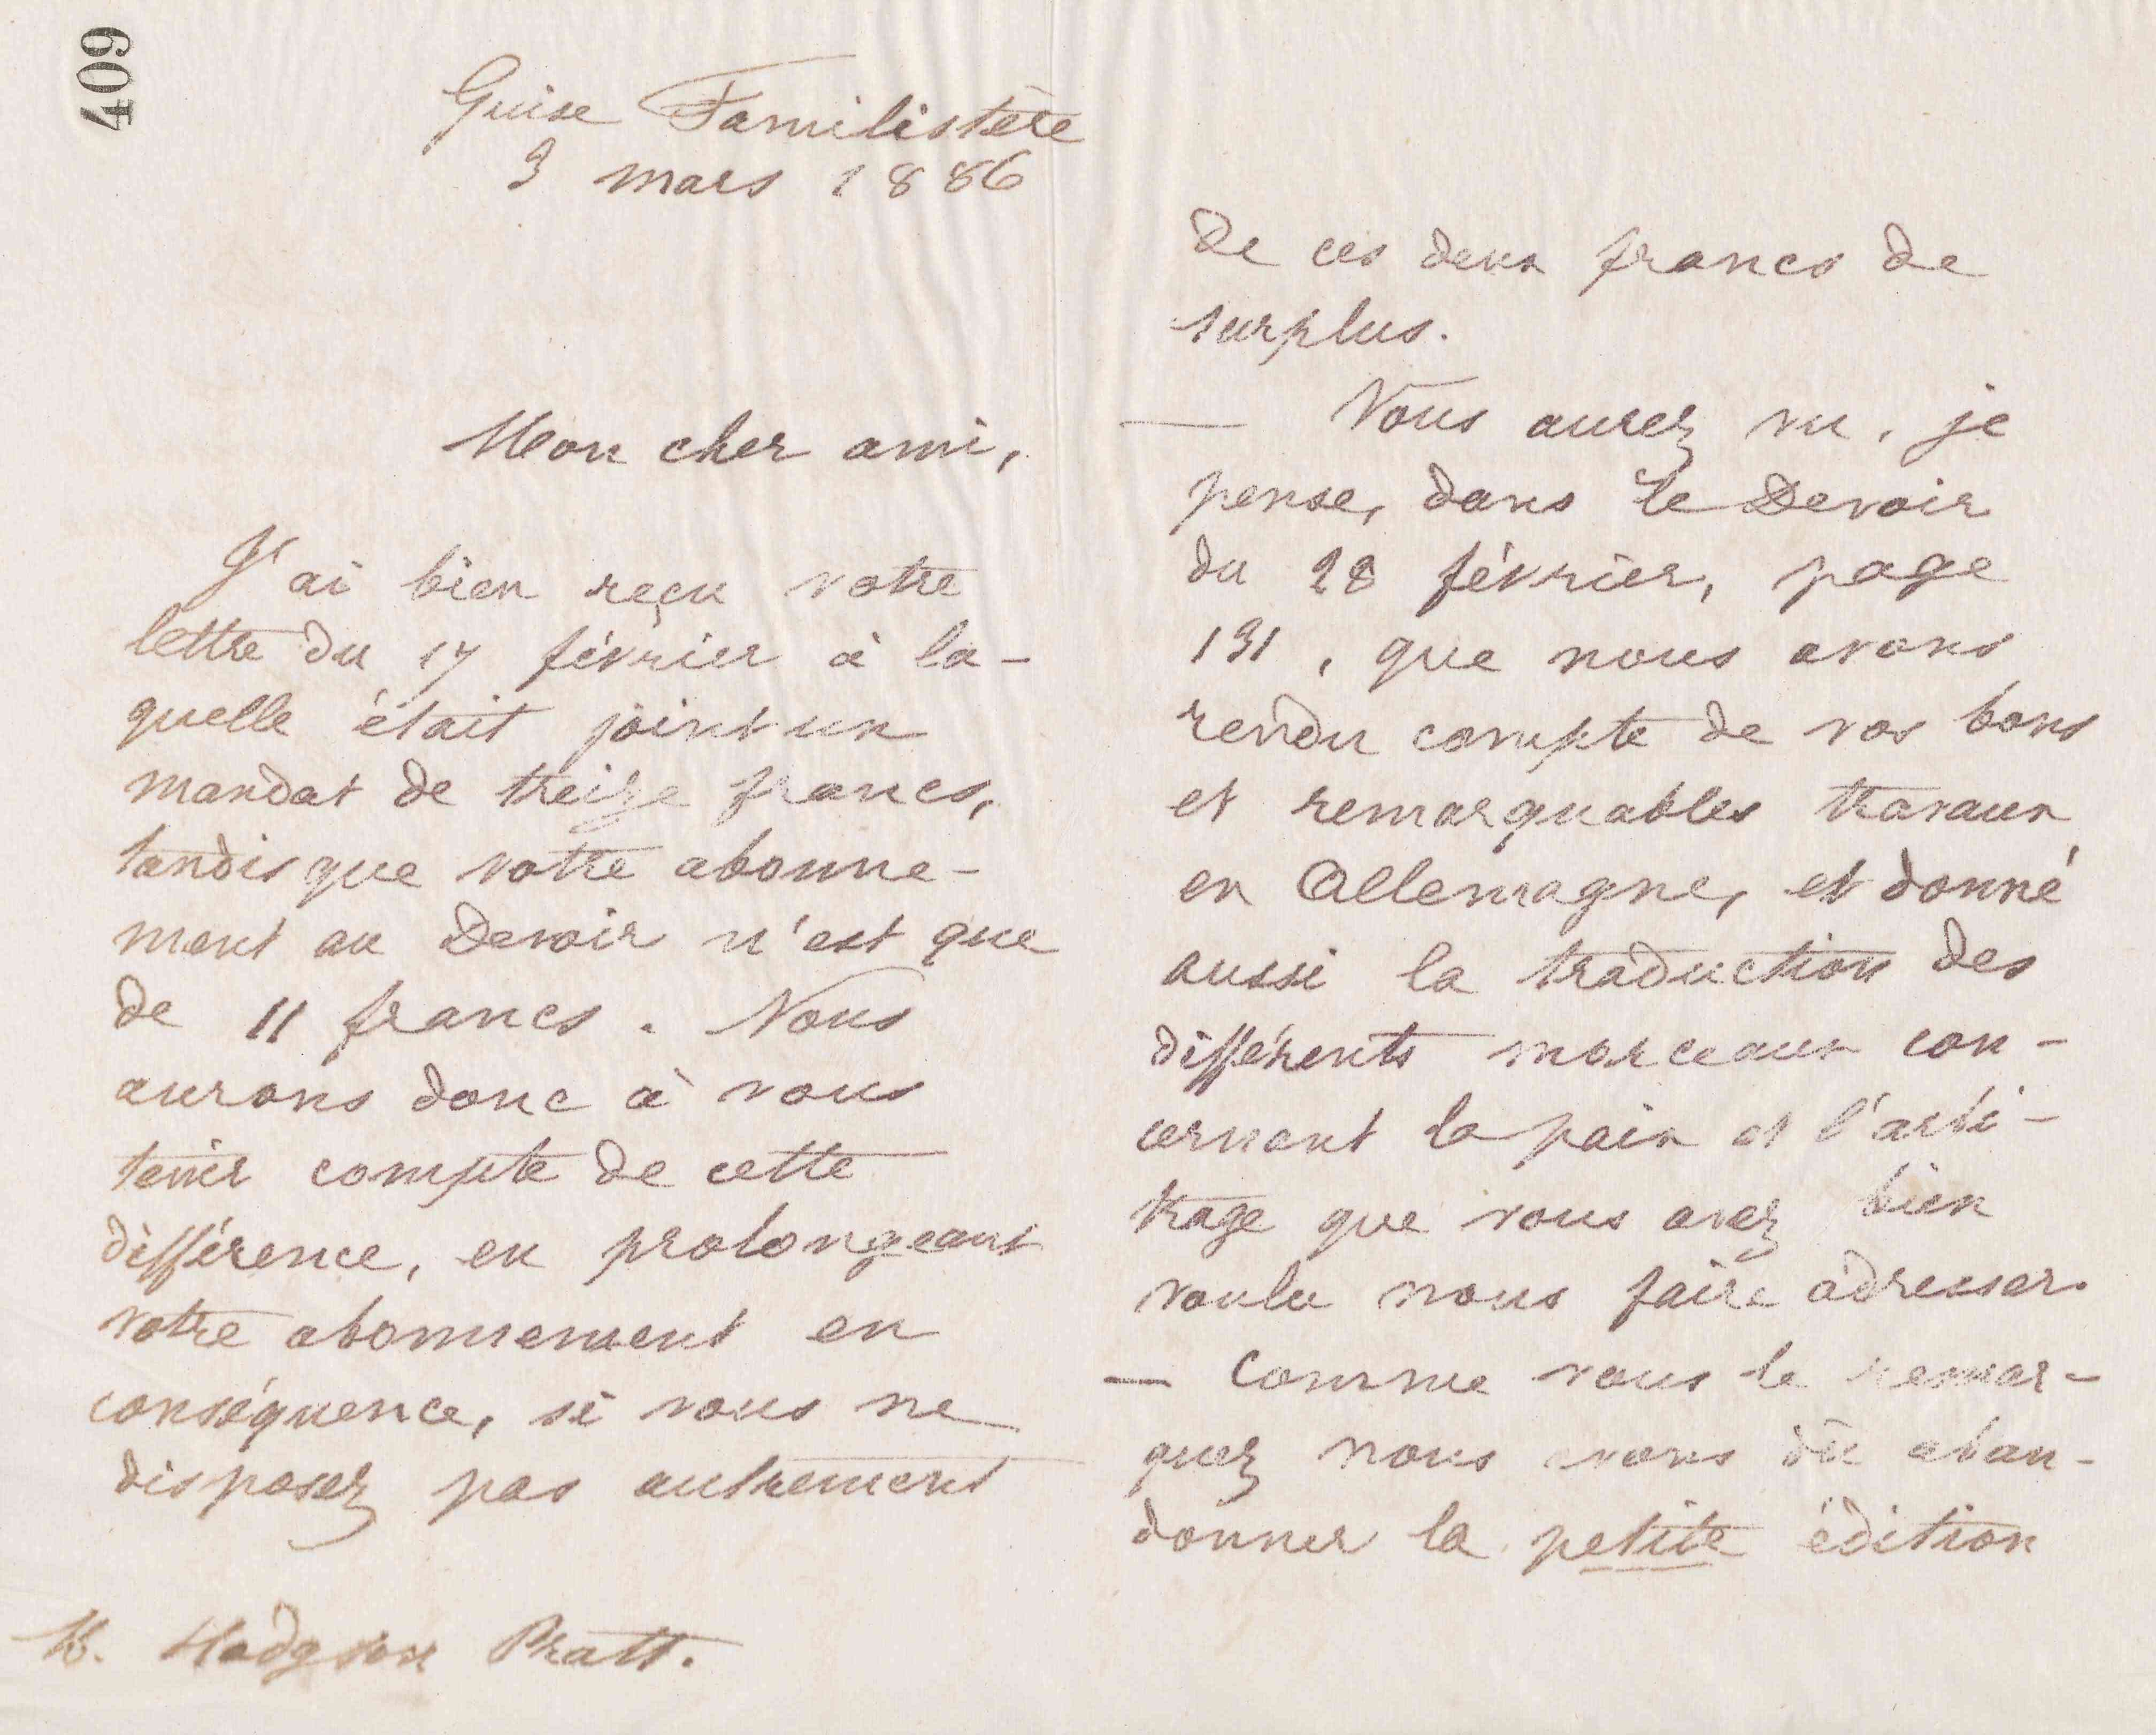 409
Guise Familistère
3 mars 1886
Mon cher ami,
J'ai bien reçu votre
lettre du 17 février à la-
quelle était joint un
mandat de treize francs,
tandis que votre abonne-
ment au Devoir n'est que
de 11 francs. Nous
aurons donc à vous
tenir compte de cette
différence, en prolongeant
votre abonnement en
conséquence, si vous ne
disposez pas autrement
M. Hodgson Pratt.
de ces deux francs de
surplus.
— Vous aurez vu, je
pense, dans le Devoir
du 28 février, page
131, que nous avons
rendu compte de vos bons
et remarquables travaux
en Allemagne, et donné
aussi la traduction des
différents morceaux con-
cernant la paix et l'arbi-
trage que vous avez bien
voulu nous faire adresser.
— Comme vous le remar-
quez nous avons dû aban-
donner la petite édition